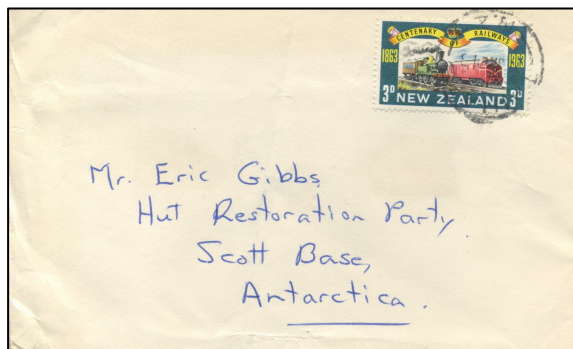 CENTENARY OF RAILWAYS
1863 1963
3D NEW ZEALAND 3D
Mr. Eric Gibbs,
Hut Restoration Party,
Scott Base,
Antarctica.